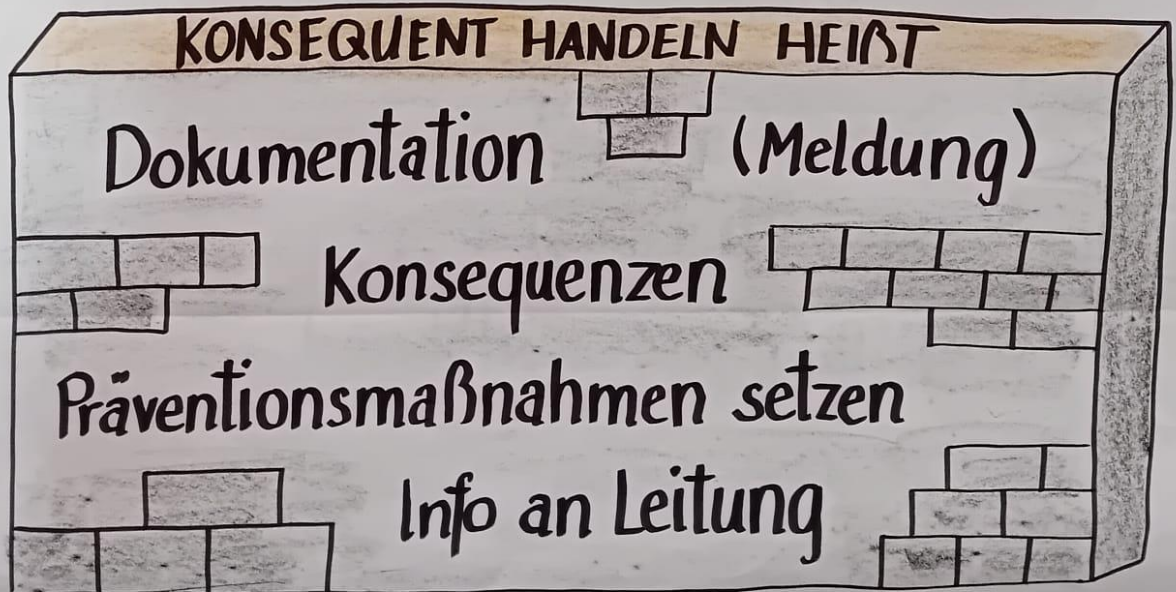 KONSEQUENT HANDELN HEIẞT
Dokumentation (Meldung)
Konsequenzen
Präventionsmaßnahmen setzen
Info an Leitung